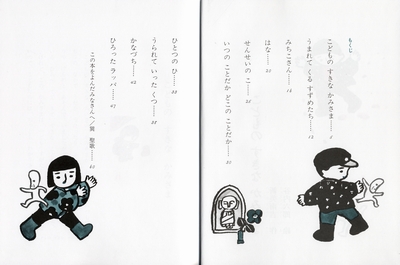 もくじ
こどもの すきな かみさま……
うまれて くる すずめたち……
みちこさん……
はな……
せんせいの こ……
いつの ことだか どこの ことだか……
ひとつの ひ……
うられて いった くつ……
かなづち……
ひろった ラッパ……
この本をよんだみなさんへ／巽 聖歌……